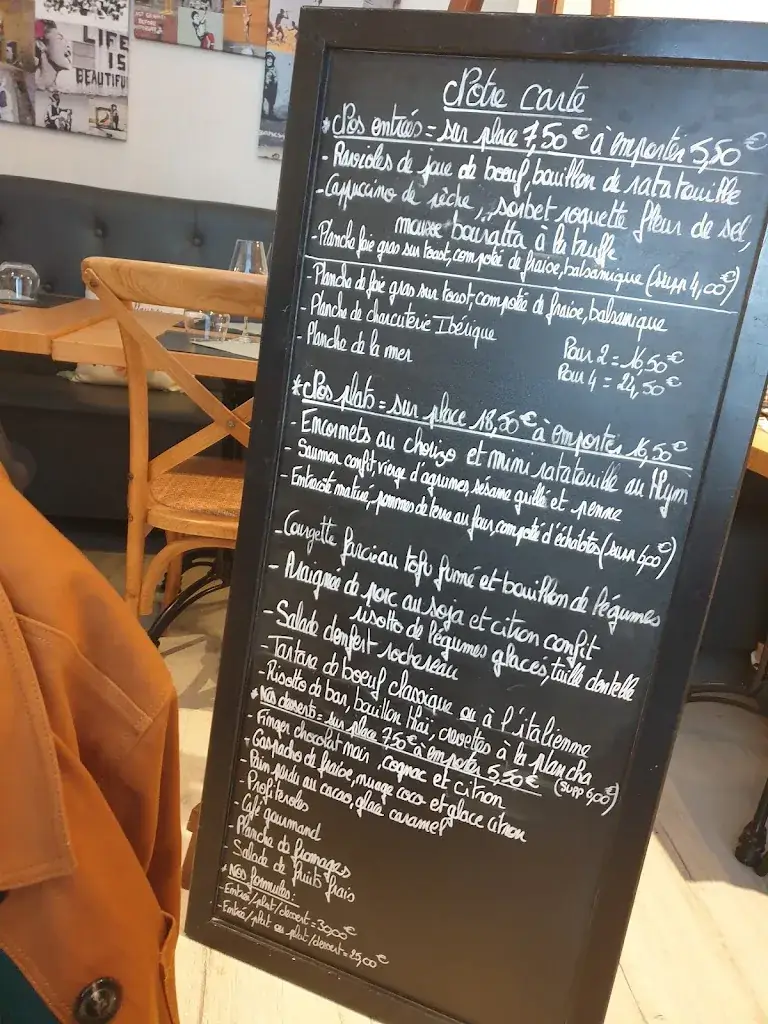 LIFE
IS
BEAUTIFUL
Notre carte
* Nos entrées = sur place 7,50€ à emporter 5,50€
- Ravioles de joue de boeuf, bouillon de ratatouille
- Cappuccino de sèche, sorbet roquette fleur de sel,
mousse bouratta à la truffe
- Planche foie gras sur toast, compotée de fraise, balsamique (supp 4,00€)
- Planche de foie gras sur toast, compotée de fraise, balsamique
- Planche de charcuterie Ibérique
- Planche de la mer
Pour 2 = 16,50€
Pour 4 = 24,50€
* Nos plats = sur place 18,50€ à emporter 16,50€
- Encornets au chorizo et mini ratatouille au thym
- Saumon confit, vierge d'agrumes, sésame grillé et penne
- Entrecôte maturé, pommes de terre au four, compotée d'échalotes (supp 6,00€)
- Courgette farcie au tofu fumé et bouillon de légumes
- Araignée de porc au soja et citron confit
risotto de légumes glacés, taille dentelle
- Salade denfert rochereau
- Tartare de boeuf classique ou à l'italienne
- Risotto de bar, bouillon thaï, crevettes à la plancha
(supp 6,00€)
* Nos desserts = sur place 7,50€ à emporter 5,50€
- Finger chocolat noir, cognac et citron
- Gaspacho de fraise, nuage coco et glace citron
- Pain perdu au cacao, glace caramel
- Profiteroles
- Café gourmand
- Planche de fromages
- Salade de fruits frais
* Nos formules:
- Entrée/plat/dessert = 30,00€
- Entrée/plat ou plat/dessert = 25,00€